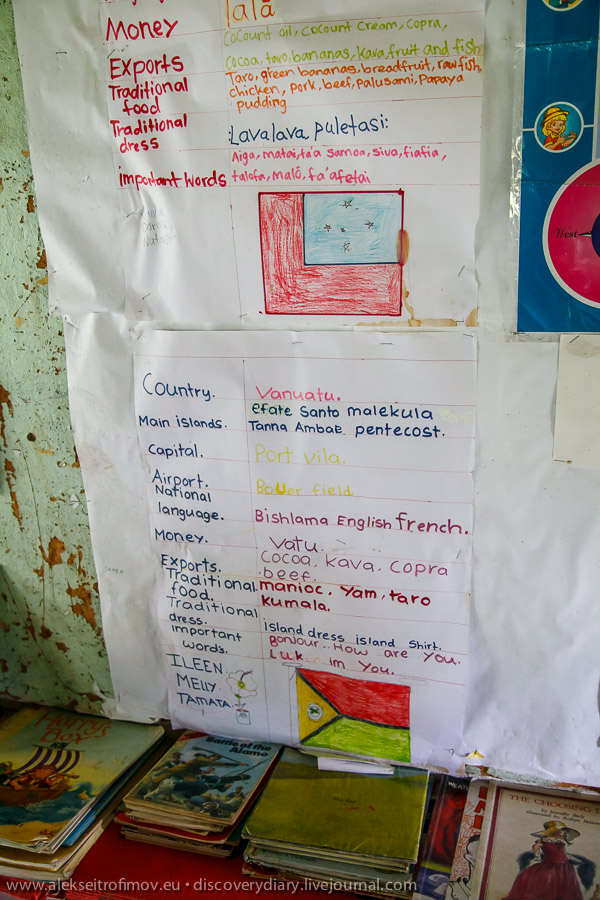 Money
talā
CoCount oil, cocount cream, copra,
Exports
cocoa, taro, bananas, kava, fruit and fish
Traditional food
Taro, green bananas, breadfruit, raw fish,
chicken, pork, beef, palusami, Papaya
pudding
Traditional dress
Lavalava, puletasi:
Important words
Aiga, matai, ta'a samoa, siva, fiafia,
talofa, malō, fa'afetai
West
Country.
Vanuatu.
Main islands.
efate Santo malekula
Tanna Ambae pentecost.
Capital.
Port vila.
Airport.
Bauer field
National
language.
Bishlama English french.
Money.
Vatu.
Exports.
Cocoa, kava, copra
beef.
Traditional
food.
manioc, yam, taro
kumala.
Traditional
dress.
Island dress island shirt.
important
words.
Bonjour.. How are you.
Luk im You.
ILEEN
MELLY
TAMATA
Harry's
Box
Battle of the
Alamo
THE CHOOSING
www.alekseitrofimov.eu • discoverydiary.livejournal.com